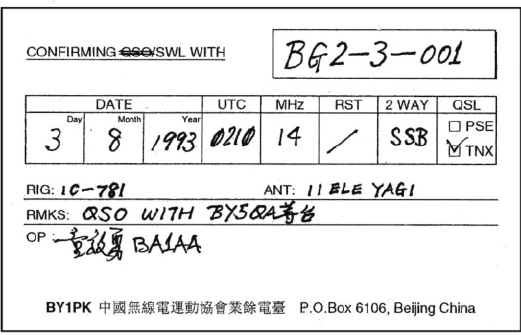 CONFIRMING QSO/SWL WITH BG2-3-001
DATE UTC MHz RST 2 WAY QSL
Day Month Year
3 8 1993 0210 14 / SSB □ PSE
☑ TNX
RIG: IC-781 ANT: 11 ELE YAGI
RMKS: QSO WITH BY5QA等台
OP: 童效勇 BA1AA
BY1PK 中國無線電運動協會業餘電臺 P.O.Box 6106, Beijing China